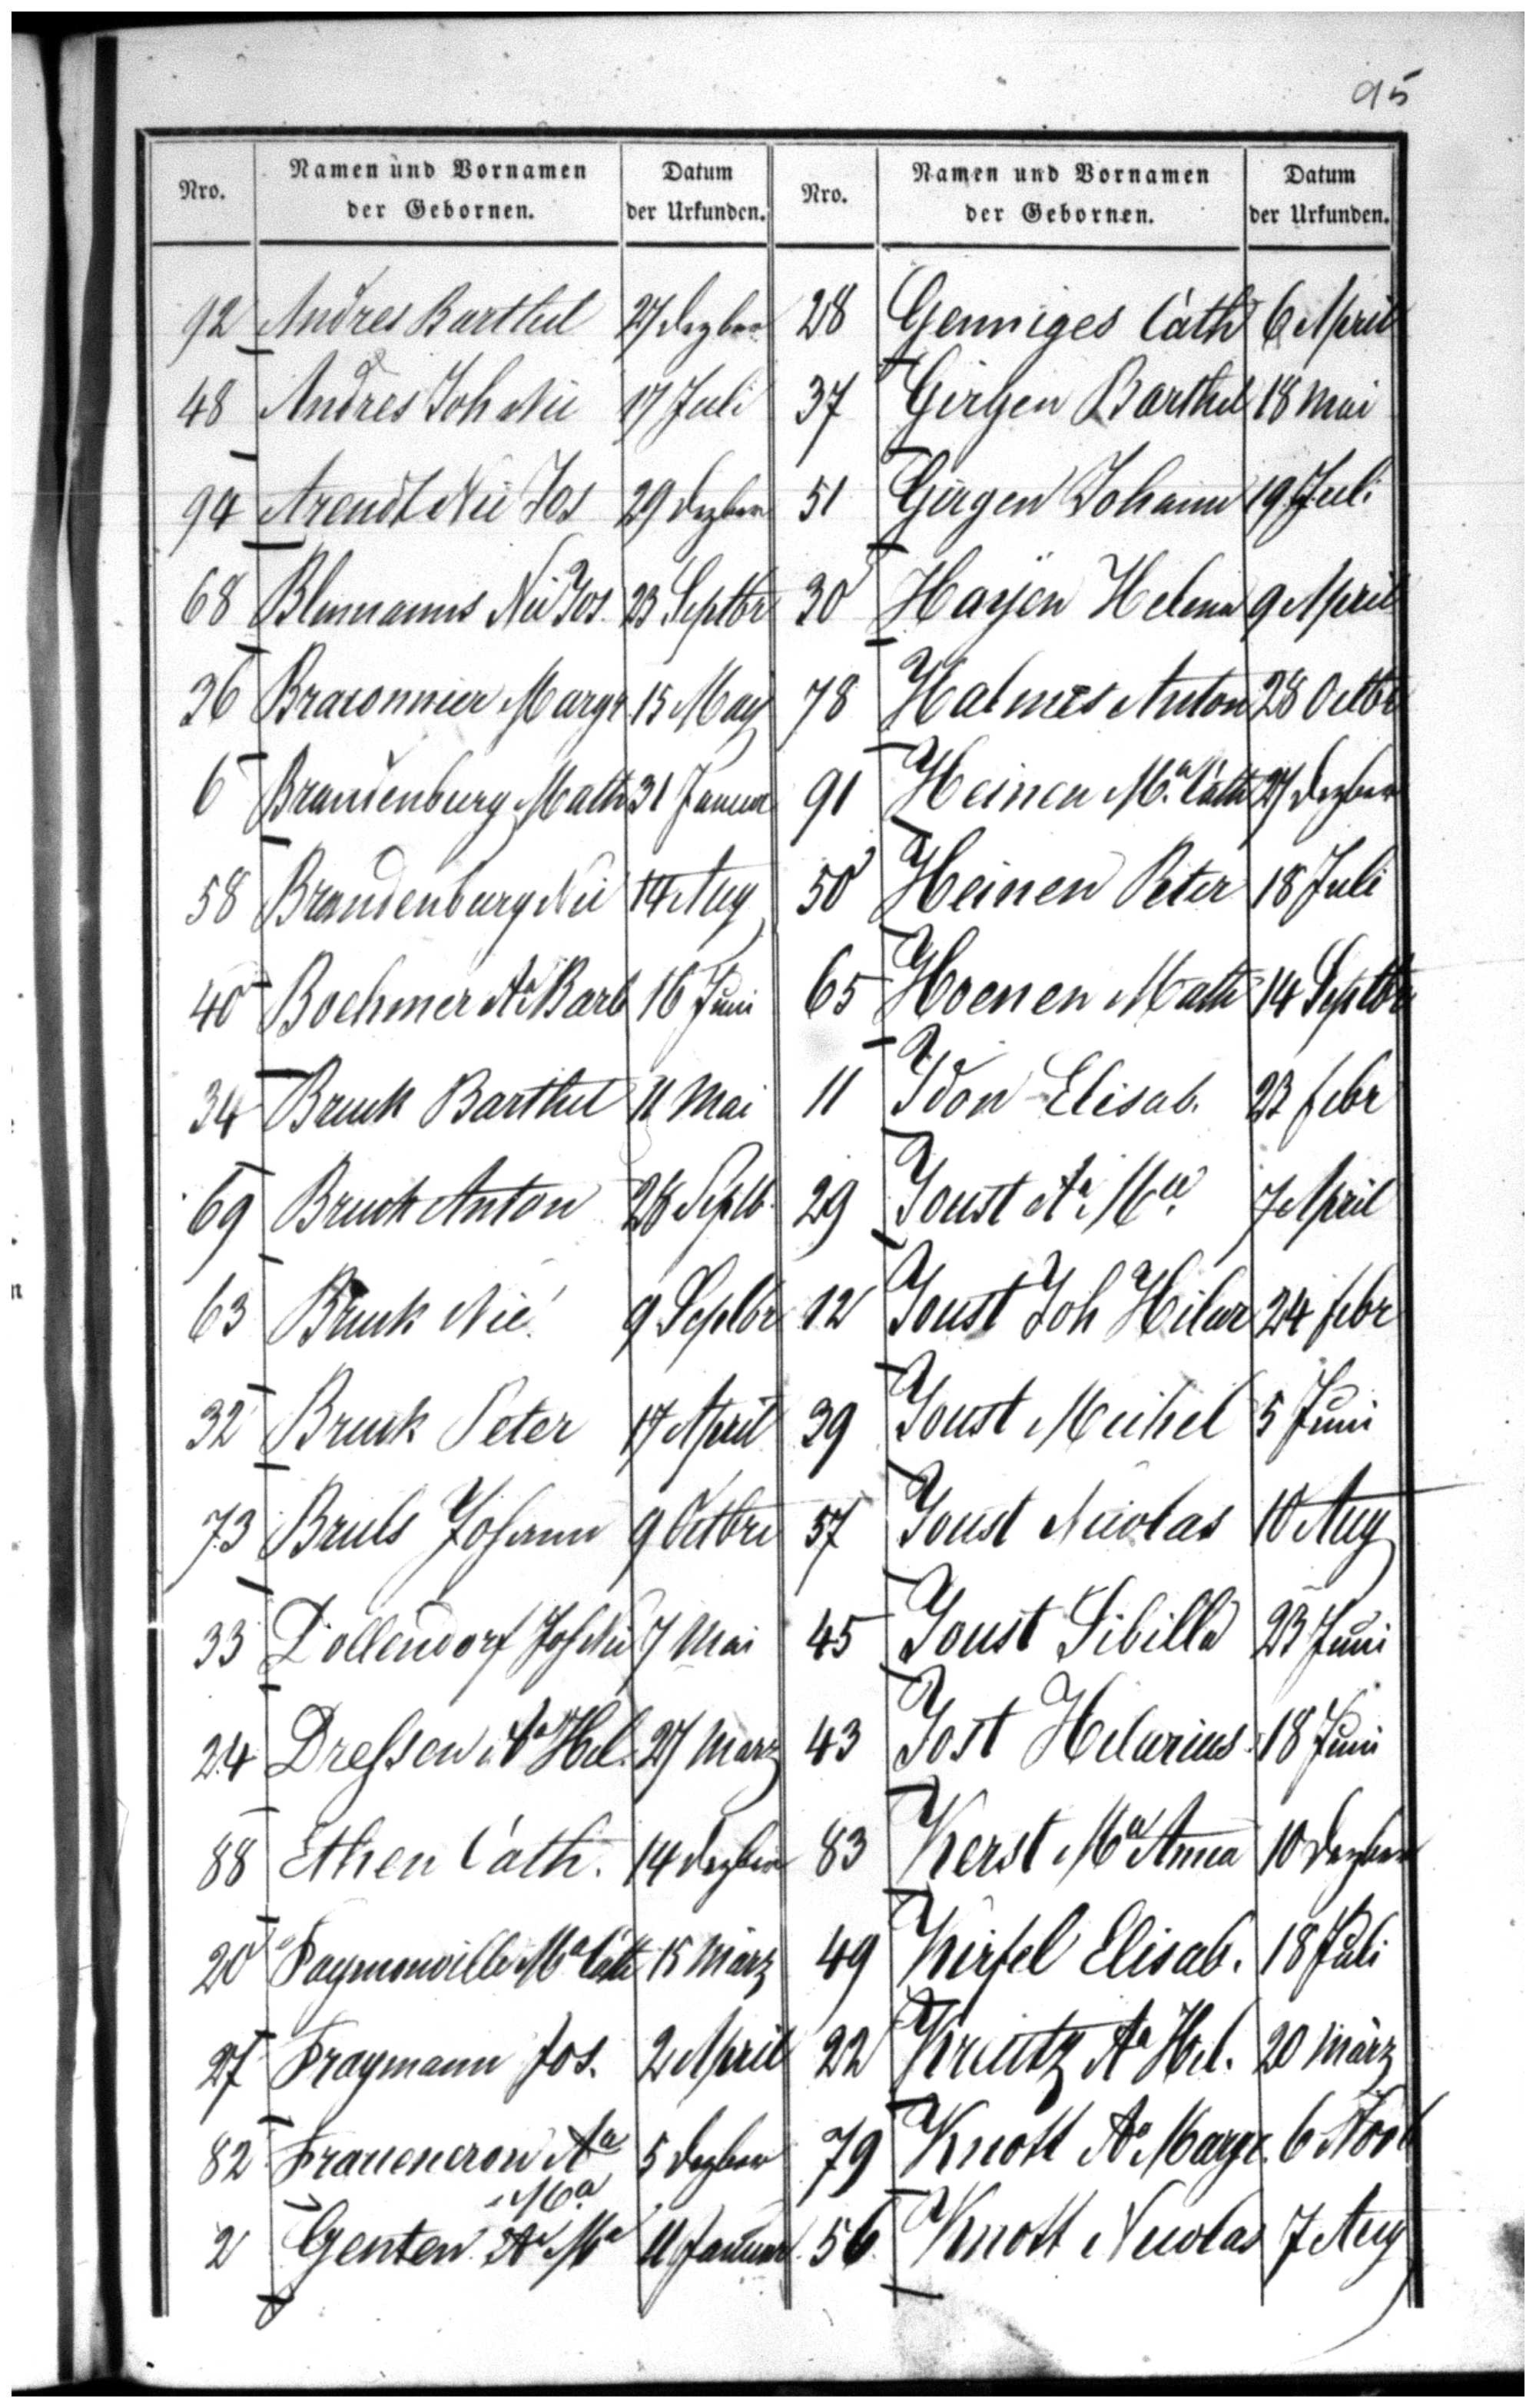 95
Nro. Namen und Vornamen der Gebornen. Datum der Urkunden.
92 Andres Barthel 27 Dezber
48 Andres Joh Nic 17 Juli
94 Arendt Nic Jos 29 Dezber
68 Blumanns Nic Jos. 23 Septbr
36 Braconnier Margr 15 May
6 Brandenburg Math 31 Januar
58 Brandenburg Nic 14 Aug
40 Boehmer Aa Barb 16 Juni
34 Bruck Barthel 11 Mai
69 Bruck Anton 28 Septb.
63 Bruck Nic. 9 Septbr
32 Bruck Peter 17 April
73 Bruls Johann 9 Octbre
33 Dollendorf Joh Nic 7 Mai
24 Dreßen Aa Hel. 27 März
88 Ethen Cath. 14 Dezber
20 Faymonville Ma Cath 15 März
27 Fraymann Jos. 2 April
82 Frauencron Aa Ma 5 Dezber
2 Genten Aa Ma 11 Januar
Nro. Namen und Vornamen der Gebornen. Datum der Urkunden.
28 Genniges Cath 6 April
37 Girgen Barthel 18 Mai
51 Girgen Johann 19 Juli
30 Hayen Helena 9 April
78 Halmes Anton 28 Octbr
91 Heinen Ma. Cath 27 Dezber
50 Heinen Peter 18 Juli
65 Hoenen Math 14 Septbr
11 Idon Elisab. 23 febr
29 Joust Aa Ma. 7 April
12 Joust Joh Hilar 24 febr
39 Joust Michel 5 Juni
57 Joust Nicolas 10 Aug
45 Joust Sibilla 23 Juni
43 Jost Hilarius 18 Juni
83 Kerst Ma Anna 10 Dezber
49 Kirfel Elisab. 18 Juli
22 Kreutz Aa Hel. 20 März
79 Knott Aa Margr. 6 Novb
56 Knott Nicolas 7 Aug